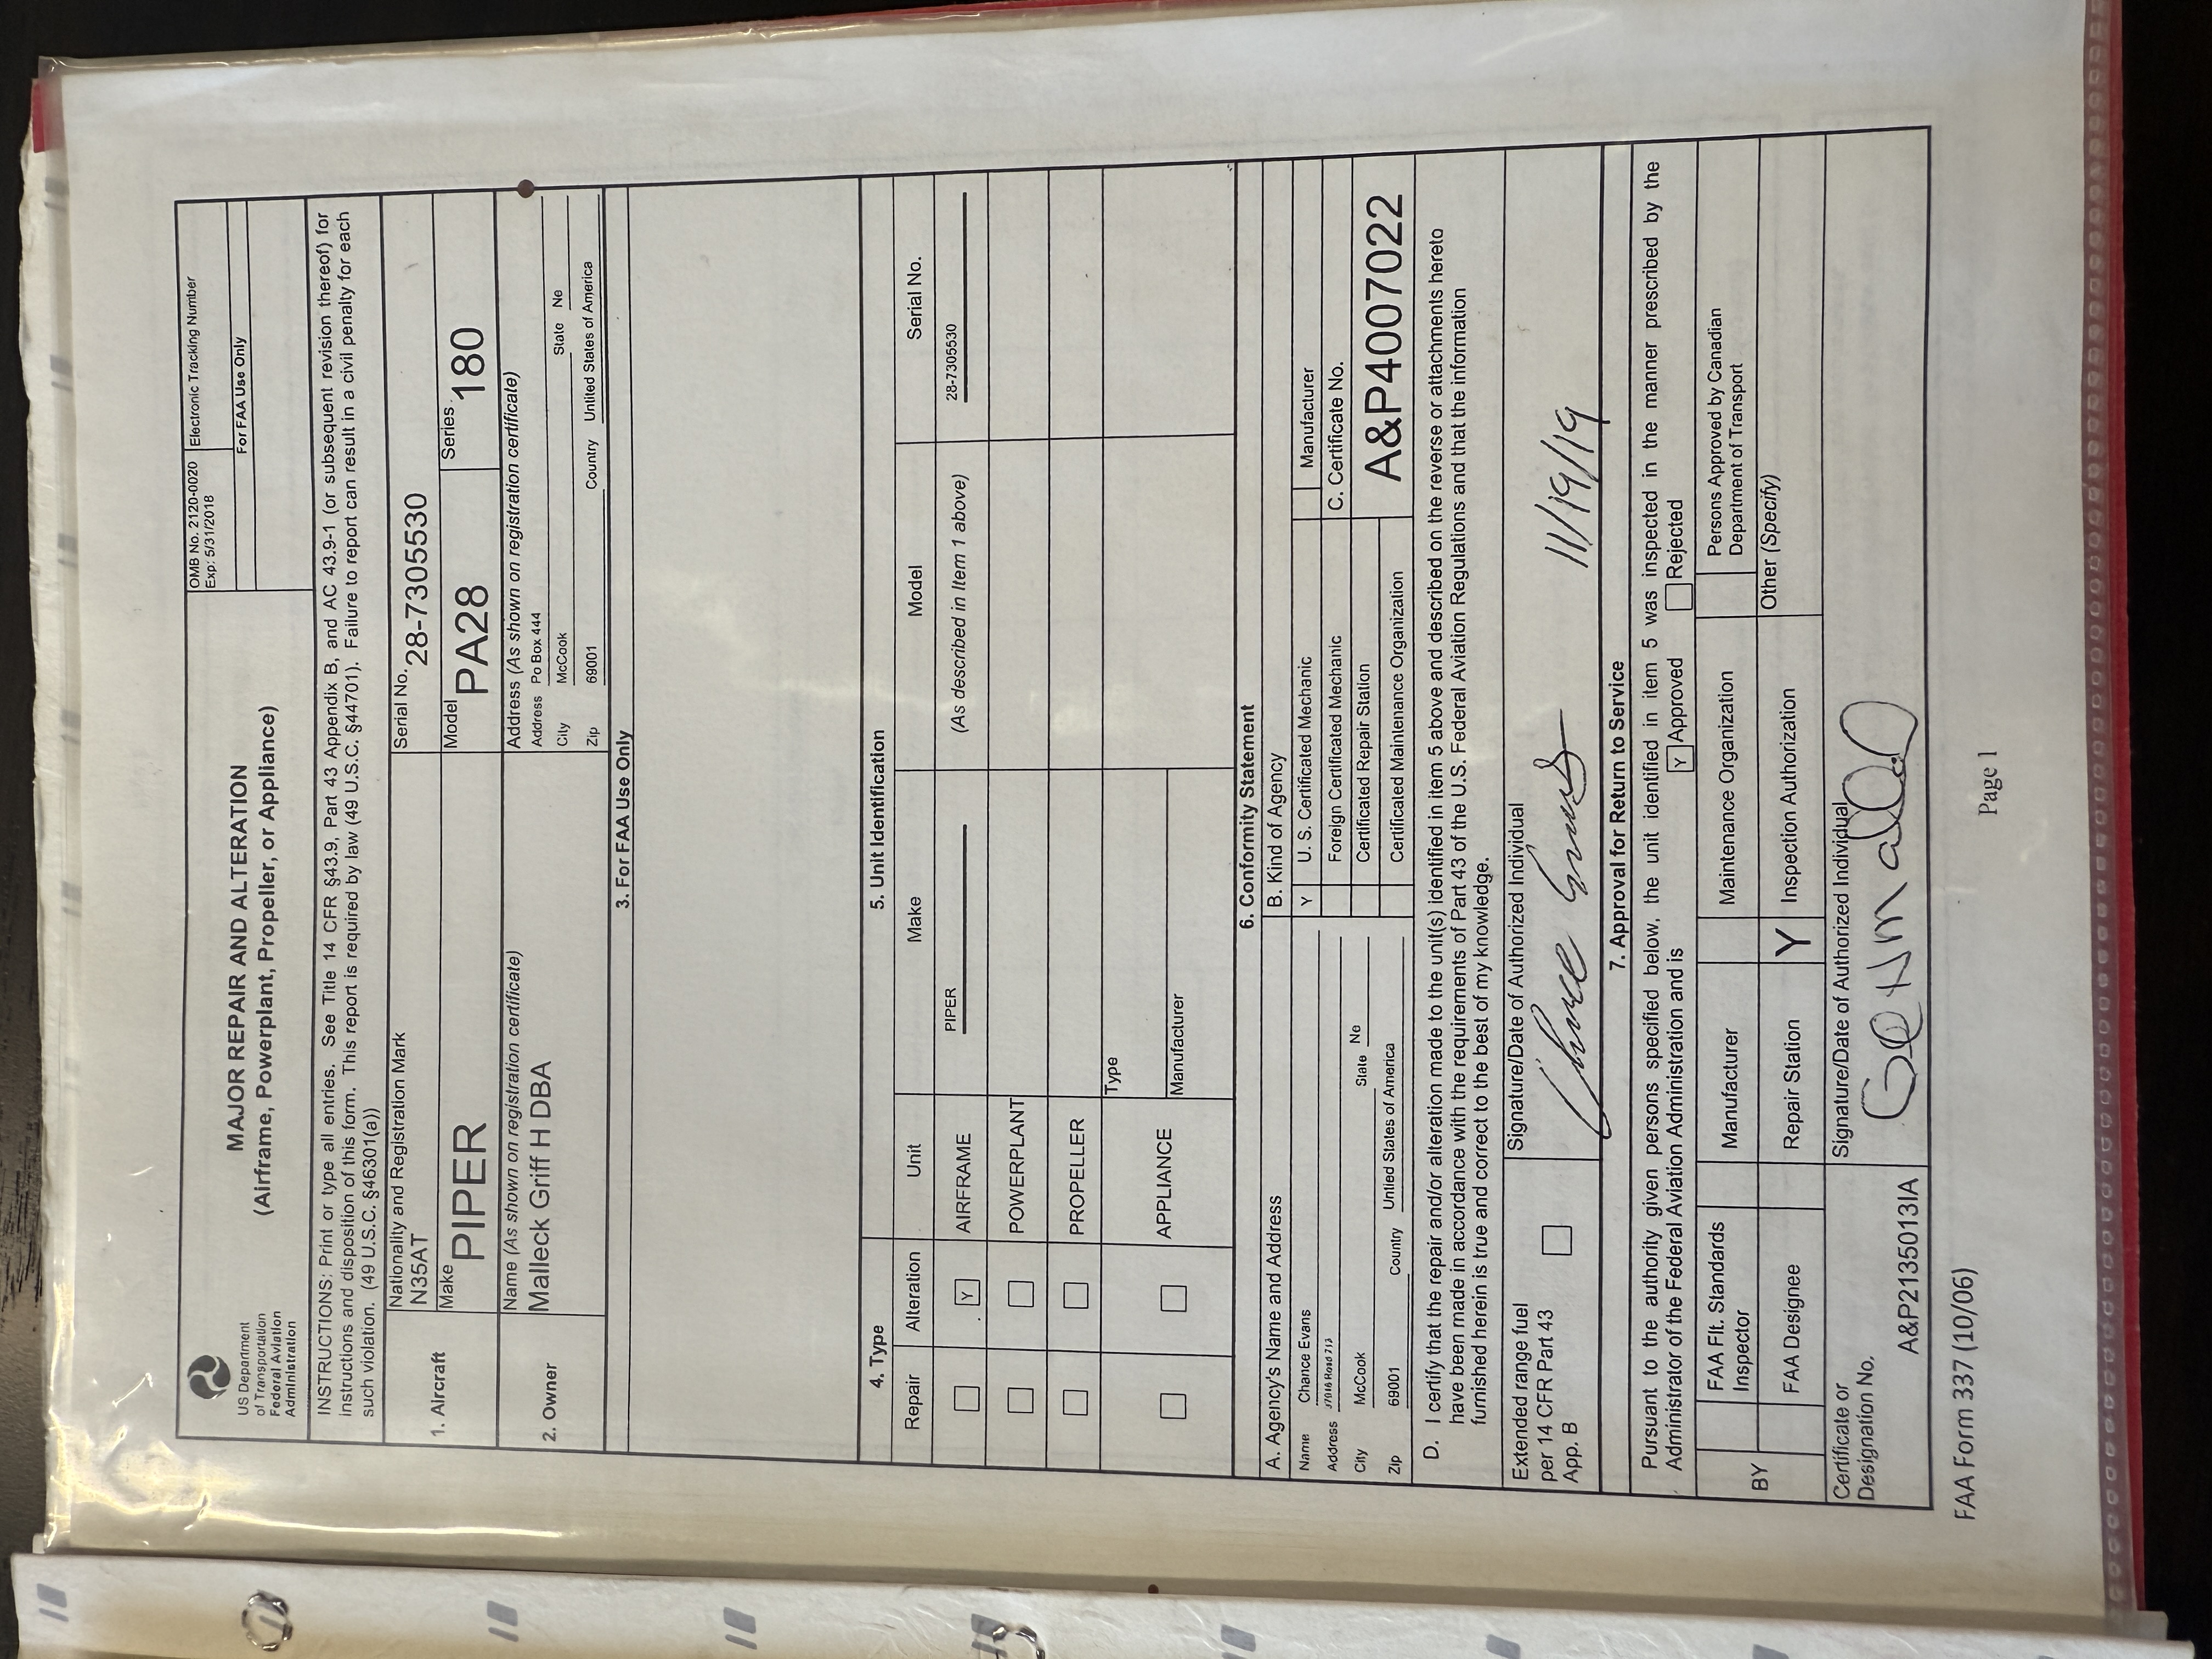 US Department
of Transportation
Federal Aviation
Administration
MAJOR REPAIR AND ALTERATION
(Airframe, Powerplant, Propeller, or Appliance)
OMB No. 2120-0020
Exp: 5/31/2018
Electronic Tracking Number
For FAA Use Only
INSTRUCTIONS: Print or type all entries. See Title 14 CFR §43.9, Part 43 Appendix B, and AC 43.9-1 (or subsequent revision thereof) for
instructions and disposition of this form. This report is required by law (49 U.S.C. §44701). Failure to report can result in a civil penalty for each
such violation. (49 U.S.C. §46301(a))
1. Aircraft
Nationality and Registration Mark
N35AT
Serial No.
28-7305530
Make
PIPER
Model
PA28
Series
180
2. Owner
Name (As shown on registration certificate)
Malleck Griff H DBA
Address (As shown on registration certificate)
Address Po Box 444
City McCook State Ne
Zip 69001 Country Untied States of America
3. For FAA Use Only
4. Type
5. Unit Identification
Repair Alteration Unit Make Model Serial No.
Y AIRFRAME PIPER (As described in Item 1 above) 28-7305530
POWERPLANT
PROPELLER
APPLIANCE
Type
Manufacturer
6. Conformity Statement
A. Agency's Name and Address
B. Kind of Agency
Name Chance Evans
Address Road 713
City McCook State Ne
Zip 69001 Country Untied States of America
Y U. S. Certificated Mechanic
Manufacturer
Foreign Certificated Mechanic
C. Certificate No.
Certificated Repair Station
A&P4007022
Certificated Maintenance Organization
D. I certify that the repair and/or alteration made to the unit(s) identified in item 5 above and described on the reverse or attachments hereto
have been made in accordance with the requirements of Part 43 of the U.S. Federal Aviation Regulations and that the information
furnished herein is true and correct to the best of my knowledge.
Extended range fuel
per 14 CFR Part 43
App. B
Signature/Date of Authorized Individual
11/19/19
7. Approval for Return to Service
Pursuant to the authority given persons specified below, the unit identified in item 5 was inspected in the manner prescribed by the
Administrator of the Federal Aviation Administration and is Y Approved Rejected
BY
FAA Flt. Standards
Inspector
Manufacturer
Maintenance Organization
Persons Approved by Canadian
Department of Transport
FAA Designee
Repair Station
Y Inspection Authorization
Other (Specify)
Certificate or
Designation No.
A&P2135013IA
Signature/Date of Authorized Individual
FAA Form 337 (10/06)
Page 1